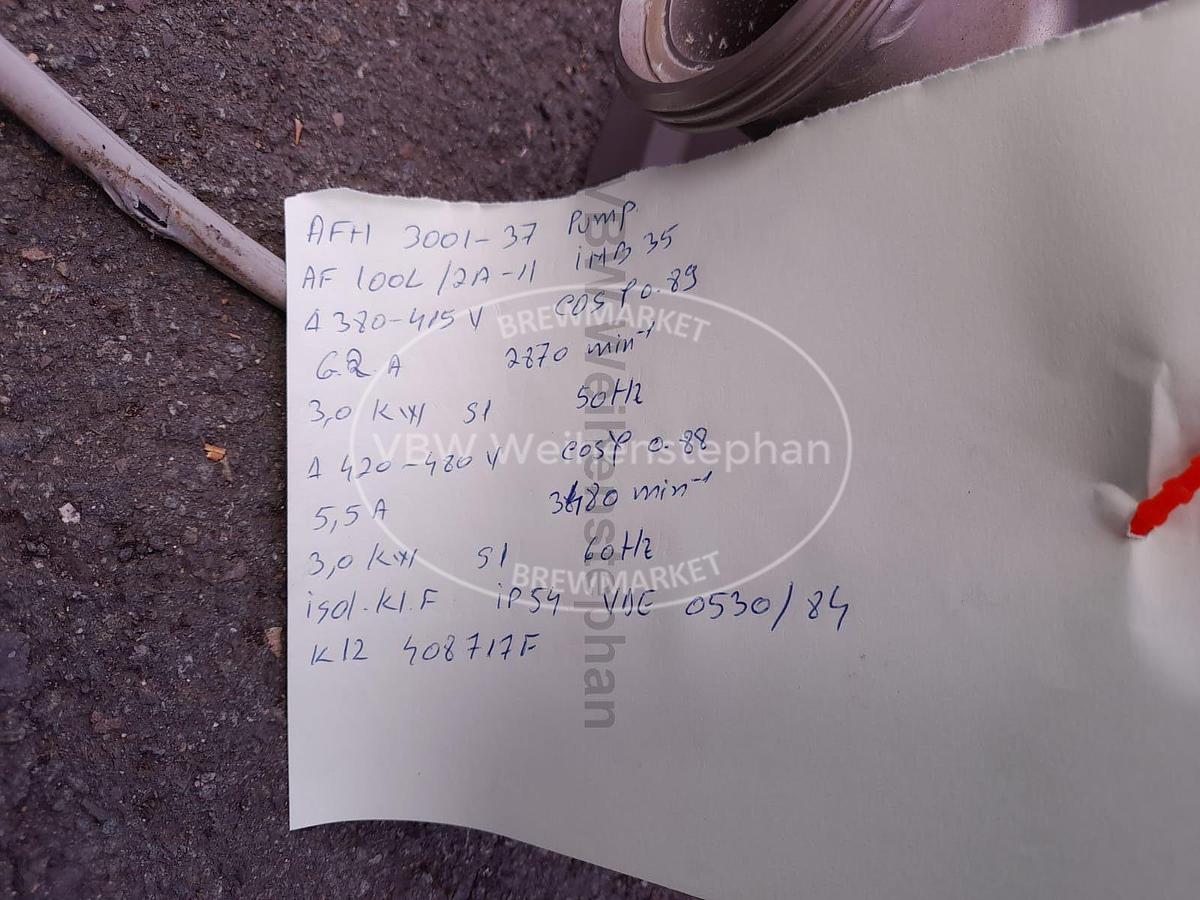 AFH 3001-37 Pump
AF 100L/2A-11 iMB 35
Δ 380-415 V cos φ 0.89
6.2 A 2870 min⁻¹
3,0 KW S1 50Hz
Δ 420-480 V cosφ 0.88
5,5 A 3480 min⁻¹
3,0 KW S1 60Hz
isol.Kl.F iP54 VDE 0530/84
K12 408717F
BREWMARKET
VBW Weihenstephan
BREWMARKET
VBW Weihenstephan